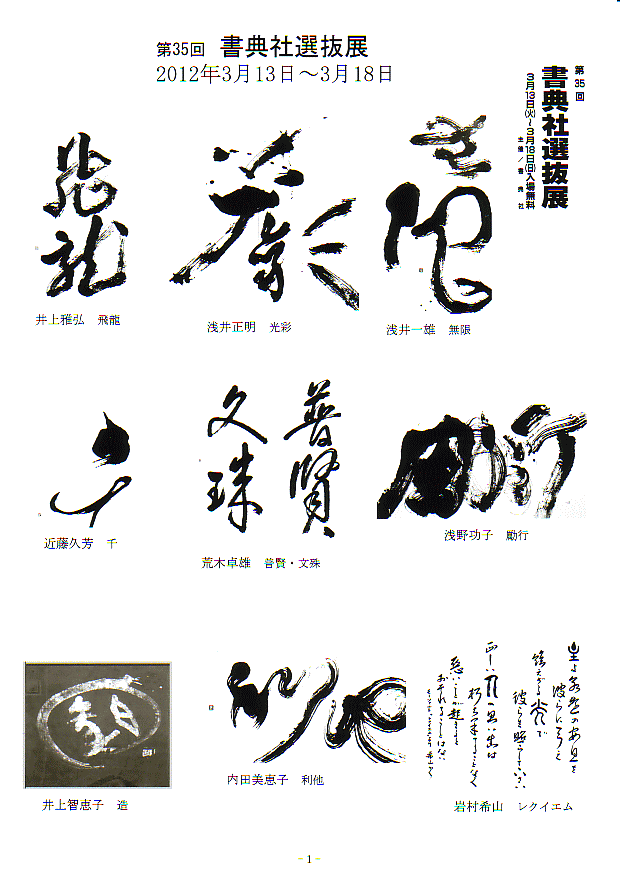 第35回 書典社選抜展
2012年3月13日～3月18日
第35回
書典社選抜展
3月13日(火)～3月18日(日)入場無料
主催／書典社
飛龍
井上雅弘 飛龍
光彩
浅井正明 光彩
無限
浅井一雄 無限
千
近藤久芳 千
普賢
文殊
荒木卓雄 普賢・文殊
勵行
浅野功子 勵行
井上智恵子 造
利他
内田美恵子 利他
岩村希山 レクイエム
- 1 -